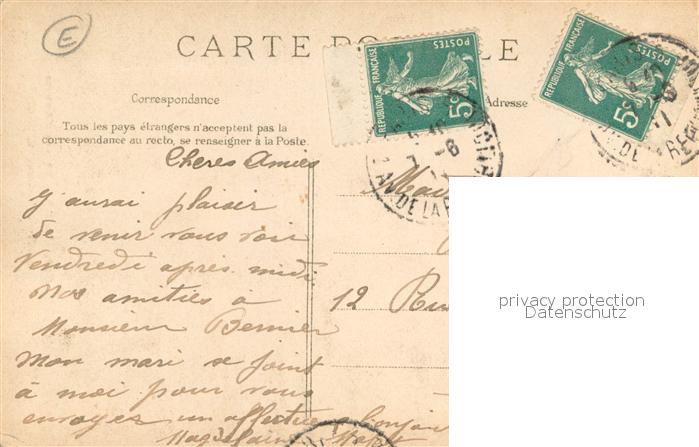 E
CARTE POSTALE
Correspondance
Adresse
Tous les pays étrangers n'acceptent pas la
correspondance au recto, se renseigner à la Poste.
REPUBLIQUE FRANÇAISE
POSTES
5c
REPUBLIQUE FRANÇAISE
POSTES
5c
AV. DE LA RE
Cheres Amies
J'aurai plaisir
de venir vous voir
Vendredi après. midi.
Mes amitiés à
Monsieur Bernier
Mon mari se joint
à moi pour vous
envoyer un affectueux bonjour
12 Rue
privacy protection
Datenschutz